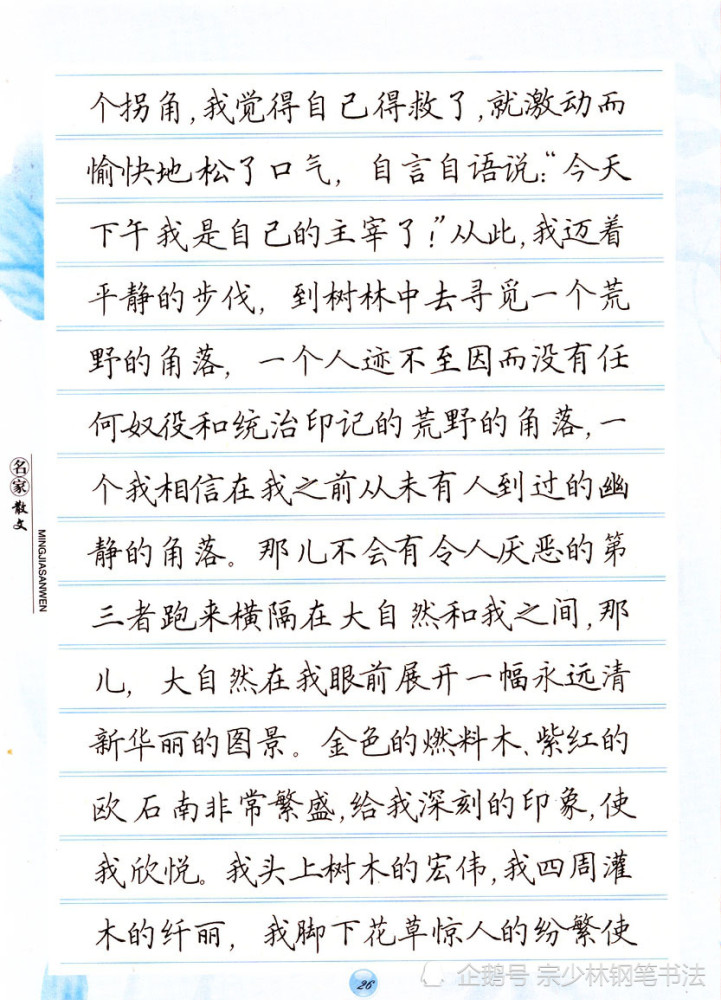 个拐角,我觉得自己得救了,就激动而
愉快地松了口气，自言自语说:“今天
下午我是自己的主宰了!”从此,我迈着
平静的步伐，到树林中去寻觅一个荒
野的角落，一个人迹不至因而没有任
何奴役和统治印记的荒野的角落,一
个我相信在我之前从未有人到过的幽
静的角落。那儿不会有令人厌恶的第
三者跑来横隔在大自然和我之间,那
儿，大自然在我眼前展开一幅永远清
新华丽的图景。金色的燃料木、紫红的
欧石南非常繁盛,给我深刻的印象,使
我欣悦。我头上树木的宏伟,我四周灌
木的纤丽，我脚下花草惊人的纷繁使
名家散文
MINGJIASANWEN
26
企鹅号 宗少林钢笔书法